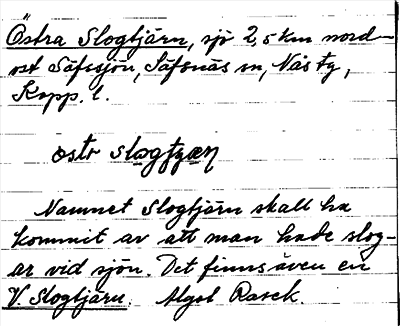 Östra Slogtjärn, sjö 2,5 km nord-
ost Säfssjön, Säfsnäs sn, Nås tg,
Kopp. l.
östr slogtjæɳ
Namnet Slogtjärn skall ha
kommit av att man hade slog-
ar vid sjön. Det finns även en
V. Slogtjärn. Algot Rasck